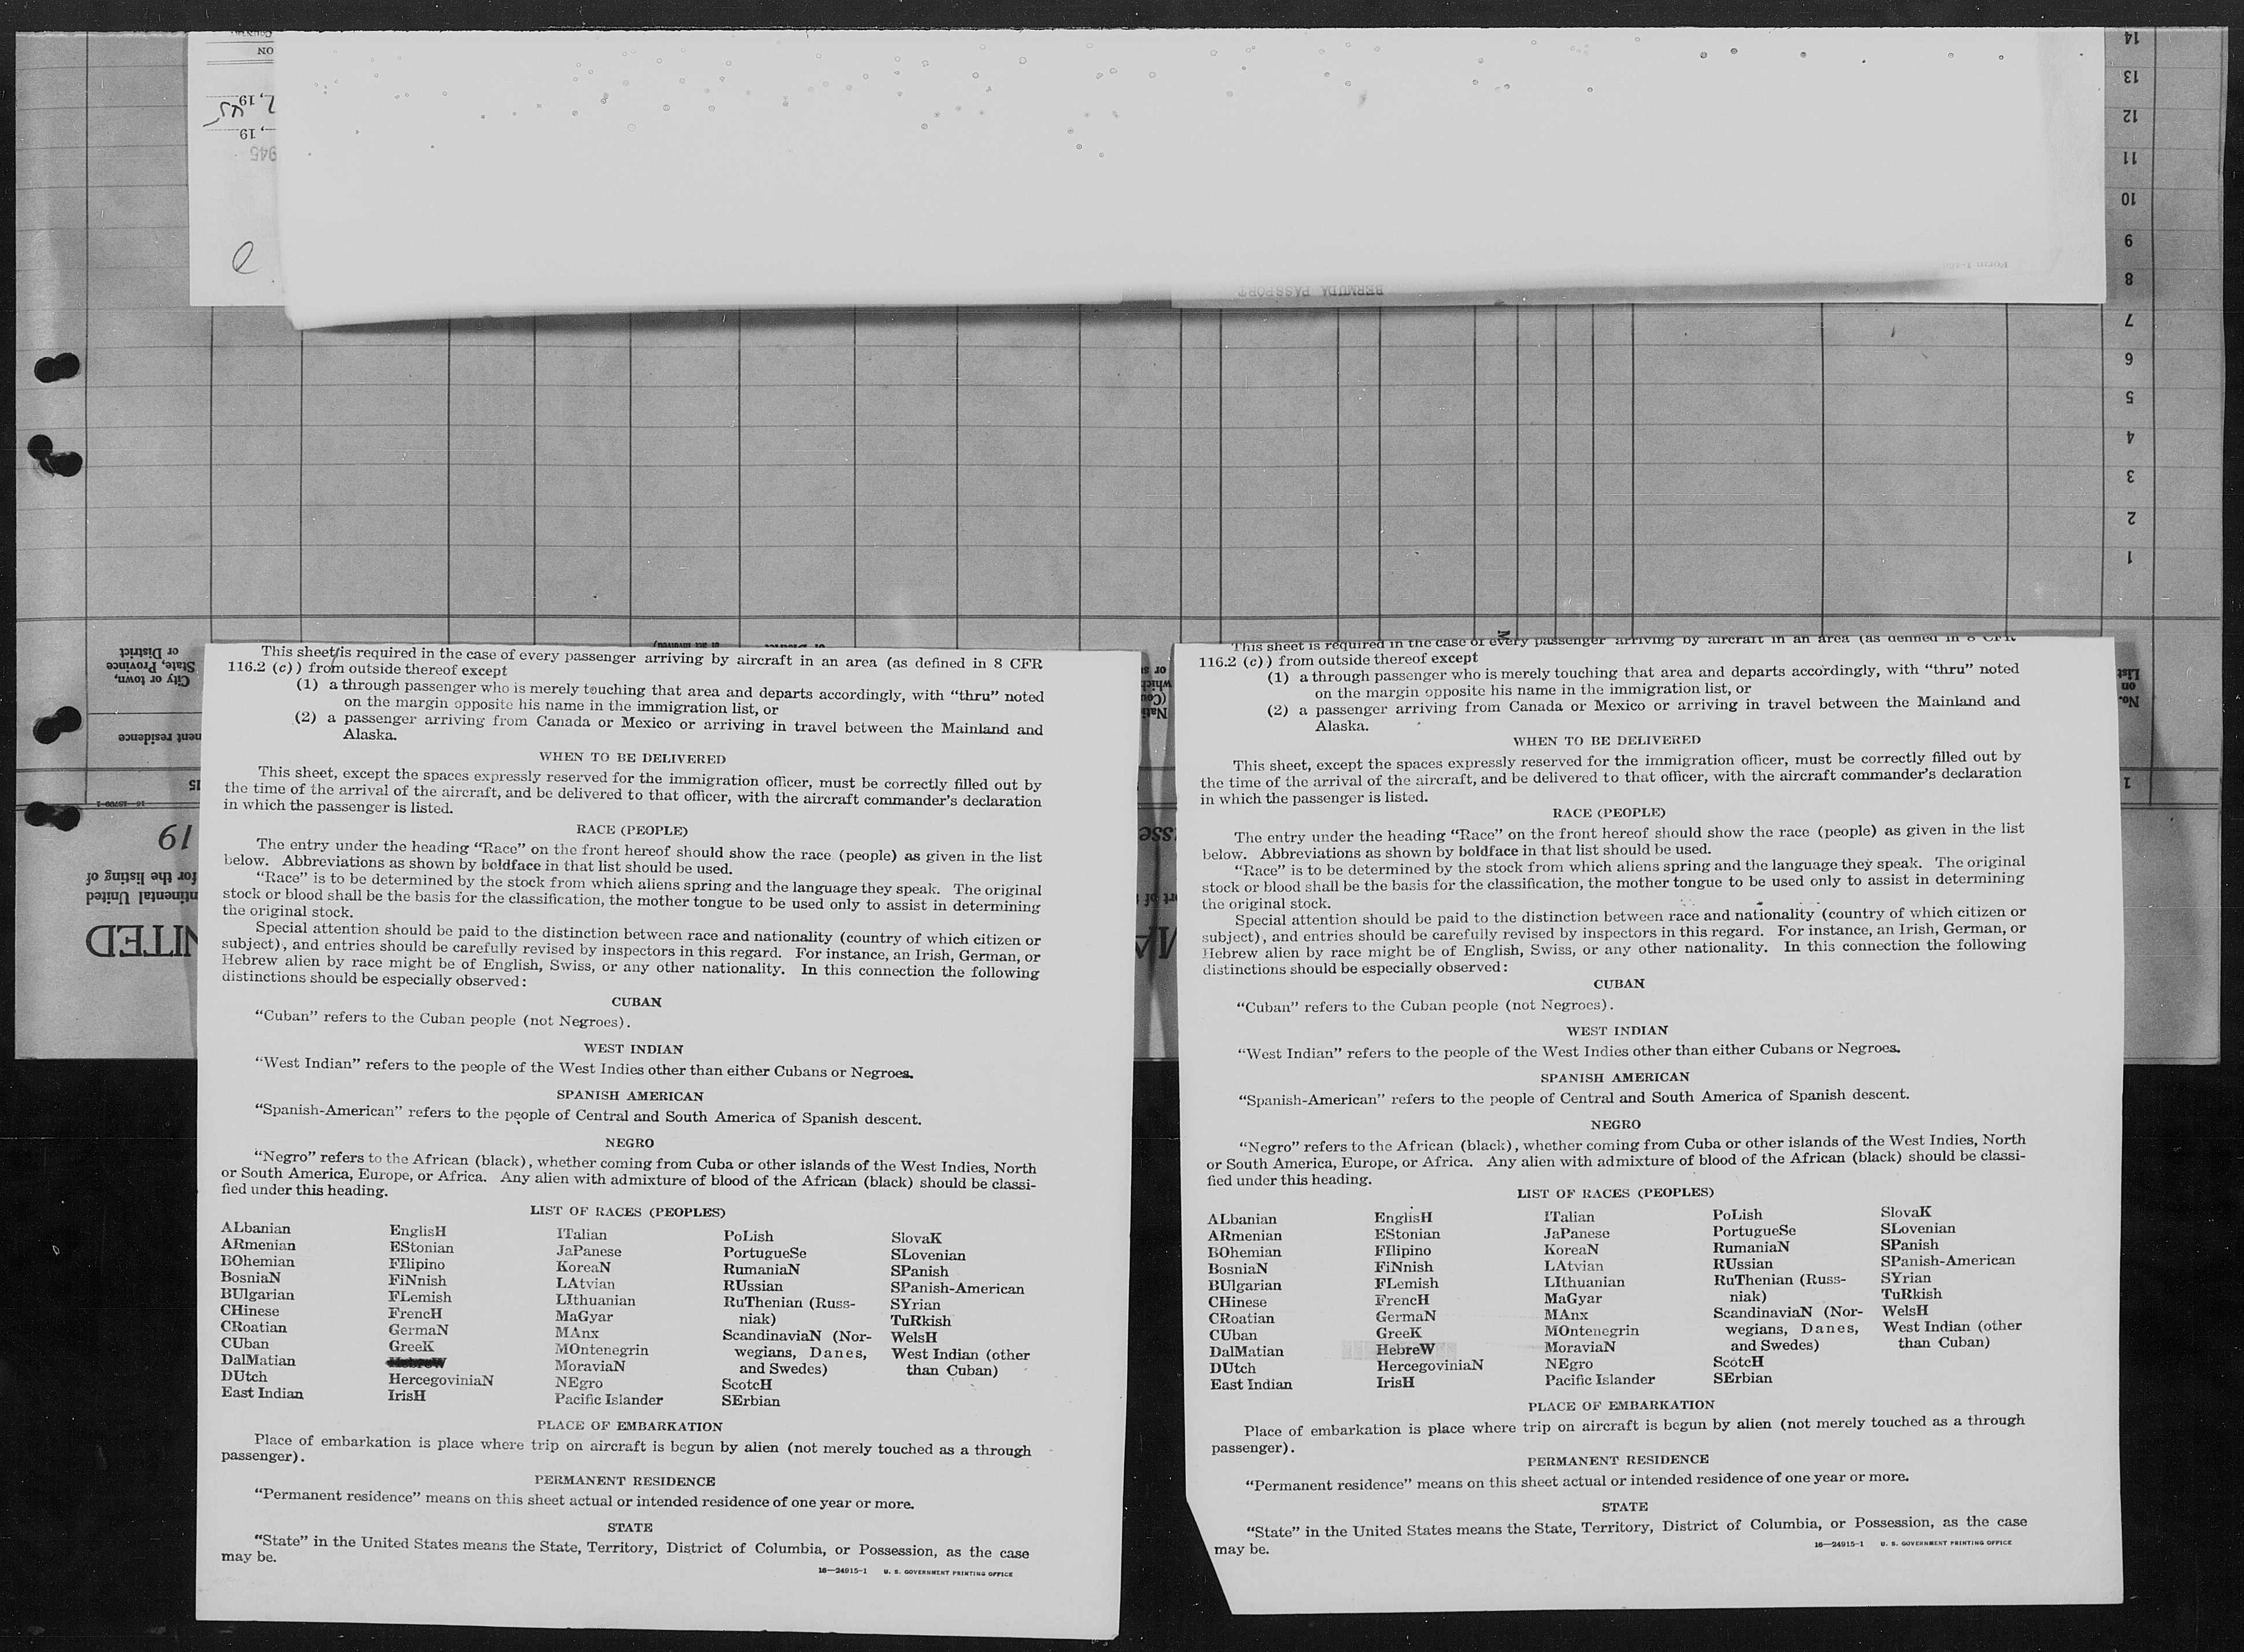 This sheet is required in the case of every passenger arriving by aircraft in an area (as defined in 8 CFR
116.2 (c)) from outside thereof except
(1) a through passenger who is merely touching that area and departs accordingly, with “thru” noted
on the margin opposite his name in the immigration list, or
(2) a passenger arriving from Canada or Mexico or arriving in travel between the Mainland and
Alaska.
WHEN TO BE DELIVERED
This sheet, except the spaces expressly reserved for the immigration officer, must be correctly filled out by
the time of the arrival of the aircraft, and be delivered to that officer, with the aircraft commander’s declaration
in which the passenger is listed.
RACE (PEOPLE)
The entry under the heading “Race” on the front hereof should show the race (people) as given in the list
below. Abbreviations as shown by boldface in that list should be used.
“Race” is to be determined by the stock from which aliens spring and the language they speak. The original
stock or blood shall be the basis for the classification, the mother tongue to be used only to assist in determining
the original stock.
Special attention should be paid to the distinction between race and nationality (country of which citizen or
subject), and entries should be carefully revised by inspectors in this regard. For instance, an Irish, German, or
Hebrew alien by race might be of English, Swiss, or any other nationality. In this connection the following
distinctions should be especially observed:
CUBAN
“Cuban” refers to the Cuban people (not Negroes).
WEST INDIAN
“West Indian” refers to the people of the West Indies other than either Cubans or Negroes.
SPANISH AMERICAN
“Spanish-American” refers to the people of Central and South America of Spanish descent.
NEGRO
“Negro” refers to the African (black), whether coming from Cuba or other islands of the West Indies, North
or South America, Europe, or Africa. Any alien with admixture of blood of the African (black) should be classi-
fied under this heading.
LIST OF RACES (PEOPLES)
ALbanian
ARmenian
BOhemian
BosniaN
BUlgarian
CHinese
CRoatian
CUban
DalMatian
DUtch
East Indian
EnglisH
EStonian
FIlipino
FiNnish
FLemish
FrencH
GermaN
GreeK
HebreW
HercegoviniaN
IrisH
ITalian
JaPanese
KoreaN
LAtvian
LIthuanian
MaGyar
MAnx
MOntenegrin
MoraviaN
NEgro
Pacific Islander
PoLish
PortugueSe
RumaniaN
RUssian
RuThenian (Russ-
niak)
ScandinaviaN (Nor-
wegians, Danes,
and Swedes)
ScotcH
SErbian
SlovaK
SLovenian
SPanish
SPanish-American
SYrian
TuRkish
WelsH
West Indian (other
than Cuban)
PLACE OF EMBARKATION
Place of embarkation is place where trip on aircraft is begun by alien (not merely touched as a through
passenger).
PERMANENT RESIDENCE
“Permanent residence” means on this sheet actual or intended residence of one year or more.
STATE
“State” in the United States means the State, Territory, District of Columbia, or Possession, as the case
may be.
16—24915-1 U. S. GOVERNMENT PRINTING OFFICE
This sheet is required in the case of every passenger arriving by aircraft in an area (as defined in 8 CFR
116.2 (c)) from outside thereof except
(1) a through passenger who is merely touching that area and departs accordingly, with “thru” noted
on the margin opposite his name in the immigration list, or
(2) a passenger arriving from Canada or Mexico or arriving in travel between the Mainland and
Alaska.
WHEN TO BE DELIVERED
This sheet, except the spaces expressly reserved for the immigration officer, must be correctly filled out by
the time of the arrival of the aircraft, and be delivered to that officer, with the aircraft commander’s declaration
in which the passenger is listed.
RACE (PEOPLE)
The entry under the heading “Race” on the front hereof should show the race (people) as given in the list
below. Abbreviations as shown by boldface in that list should be used.
“Race” is to be determined by the stock from which aliens spring and the language they speak. The original
stock or blood shall be the basis for the classification, the mother tongue to be used only to assist in determining
the original stock.
Special attention should be paid to the distinction between race and nationality (country of which citizen or
subject), and entries should be carefully revised by inspectors in this regard. For instance, an Irish, German, or
Hebrew alien by race might be of English, Swiss, or any other nationality. In this connection the following
distinctions should be especially observed:
CUBAN
“Cuban” refers to the Cuban people (not Negroes).
WEST INDIAN
“West Indian” refers to the people of the West Indies other than either Cubans or Negroes.
SPANISH AMERICAN
“Spanish-American” refers to the people of Central and South America of Spanish descent.
NEGRO
“Negro” refers to the African (black), whether coming from Cuba or other islands of the West Indies, North
or South America, Europe, or Africa. Any alien with admixture of blood of the African (black) should be classi-
fied under this heading.
LIST OF RACES (PEOPLES)
ALbanian
ARmenian
BOhemian
BosniaN
BUlgarian
CHinese
CRoatian
CUban
DalMatian
DUtch
East Indian
EnglisH
EStonian
FIlipino
FiNnish
FLemish
FrencH
GermaN
GreeK
HebreW
HercegoviniaN
IrisH
ITalian
JaPanese
KoreaN
LAtvian
LIthuanian
MaGyar
MAnx
MOntenegrin
MoraviaN
NEgro
Pacific Islander
PoLish
PortugueSe
RumaniaN
RUssian
RuThenian (Russ-
niak)
ScandinaviaN (Nor-
wegians, Danes,
and Swedes)
ScotcH
SErbian
SlovaK
SLovenian
SPanish
SPanish-American
SYrian
TuRkish
WelsH
West Indian (other
than Cuban)
PLACE OF EMBARKATION
Place of embarkation is place where trip on aircraft is begun by alien (not merely touched as a through
passenger).
PERMANENT RESIDENCE
“Permanent residence” means on this sheet actual or intended residence of one year or more.
STATE
“State” in the United States means the State, Territory, District of Columbia, or Possession, as the case
may be.
16—24915-1 U. S. GOVERNMENT PRINTING OFFICE
BERMUDA PASSPORT
No.
on
List
1
1
2
3
4
5
6
7
8
9
10
11
12
13
14
for the listing of
19
City or town,
State, Province
or District
residence
United